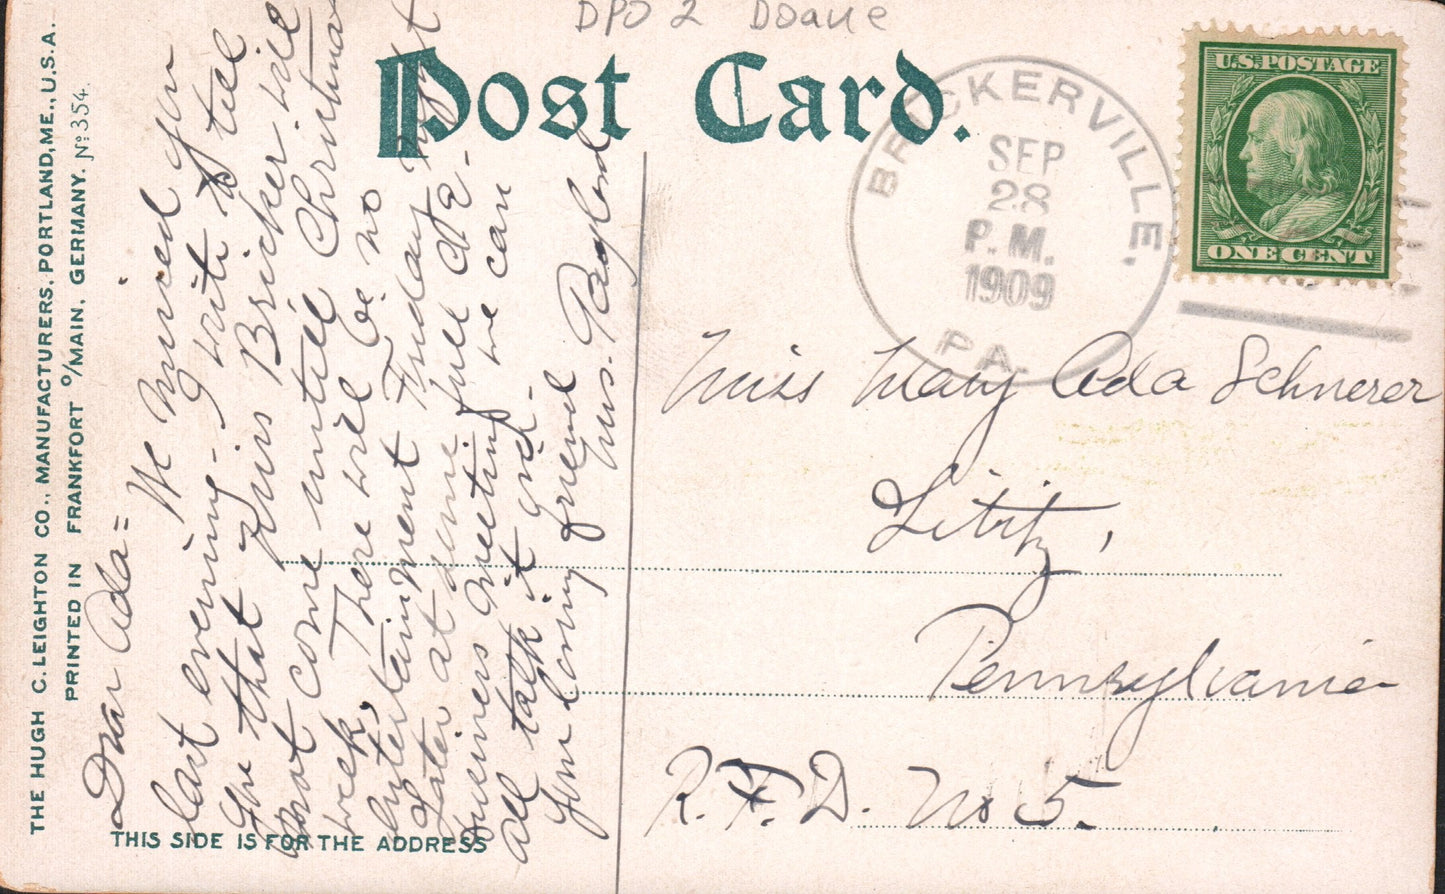 DPO 2 Doane
Post Card.
THE HUGH C. LEIGHTON CO., MANUFACTURERS, PORTLAND, ME., U.S.A.
PRINTED IN FRANKFORT O/MAIN, GERMANY. No 354.
Dear Ada=
We missed you
last evening. I write to tell
you that Miss Bricker will
not come untill Christmas
week, There will be no
Entertainment Friday night
Later at some full
business meeting we can
all talk it over.
Your loving friend
Mrs.
THIS SIDE IS FOR THE ADDRESS
BRICKERVILLE,
SEP
28
P.M.
1909
PA.
U.S. POSTAGE
ONE CENT
Miss Mary Ada Schnerer
Lititz,
Pennsylvania
R.F.D. No 5.